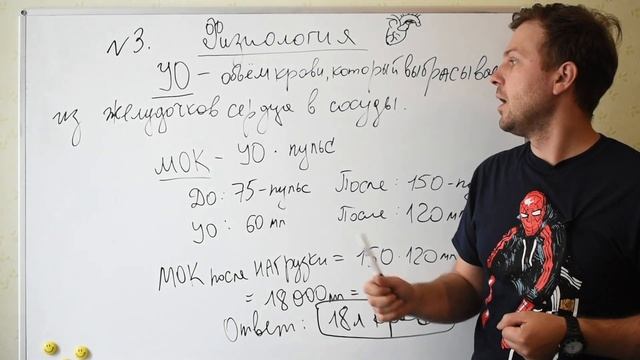 №3. Физиология
УО - объём крови, который выбрасывае
из желудочков сердца в сосуды.
МОК - УО · пульс
До: 75 - пульс После: 150 - пу
УО: 60 мл После: 120 мл
МОК после нагрузки = 150 · 120 мл
= 18000 мл =
Ответ: 18 л